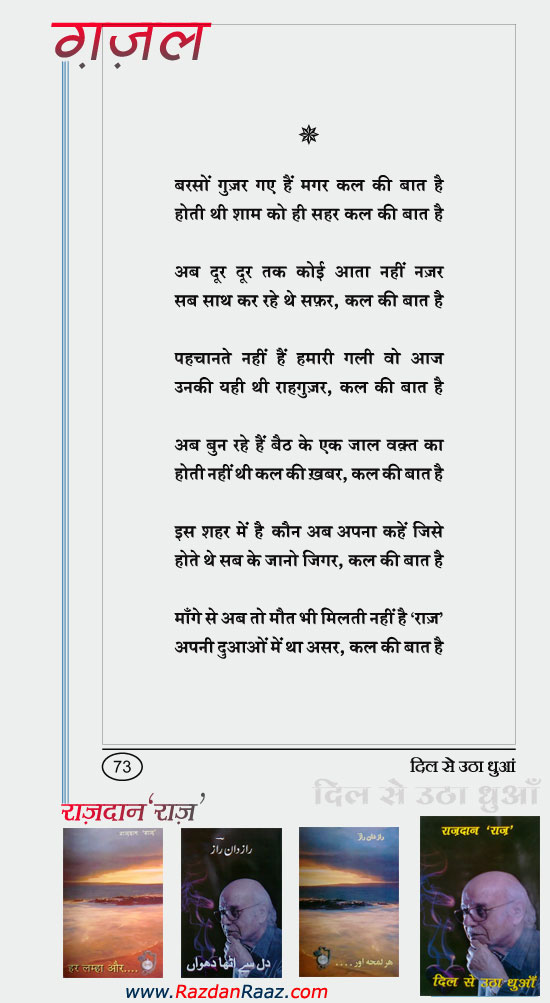 ग़ज़ल
बरसों गुज़र गए हैं मगर कल की बात है
होती थी शाम को ही सहर कल की बात है
अब दूर दूर तक कोई आता नहीं नज़र
सब साथ कर रहे थे सफ़र, कल की बात है
पहचानते नहीं हैं हमारी गली वो आज
उनकी यही थी राहगुज़र, कल की बात है
अब बुन रहे हैं बैठ के एक जाल वक़्त का
होती नहीं थी कल की ख़बर, कल की बात है
इस शहर में है कौन अब अपना कहें जिसे
होते थे सब के जानो जिगर, कल की बात है
माँगे से अब तो मौत भी मिलती नहीं है ‘राज़’
अपनी दुआओं में था असर, कल की बात है
73
दिल से उठा धुआं
दिल से उठा धुआँ
राज़दान ‘राज़’
राज़दान ‘राज़’
हर लम्हा और....
رازدان رازؔ
دل سے اٹھا دھواں
رازدان رازؔ
ہر لمحہ اور....
राज़दान ‘राज़’
दिल से उठा धुआँ
www.RazdanRaaz.com